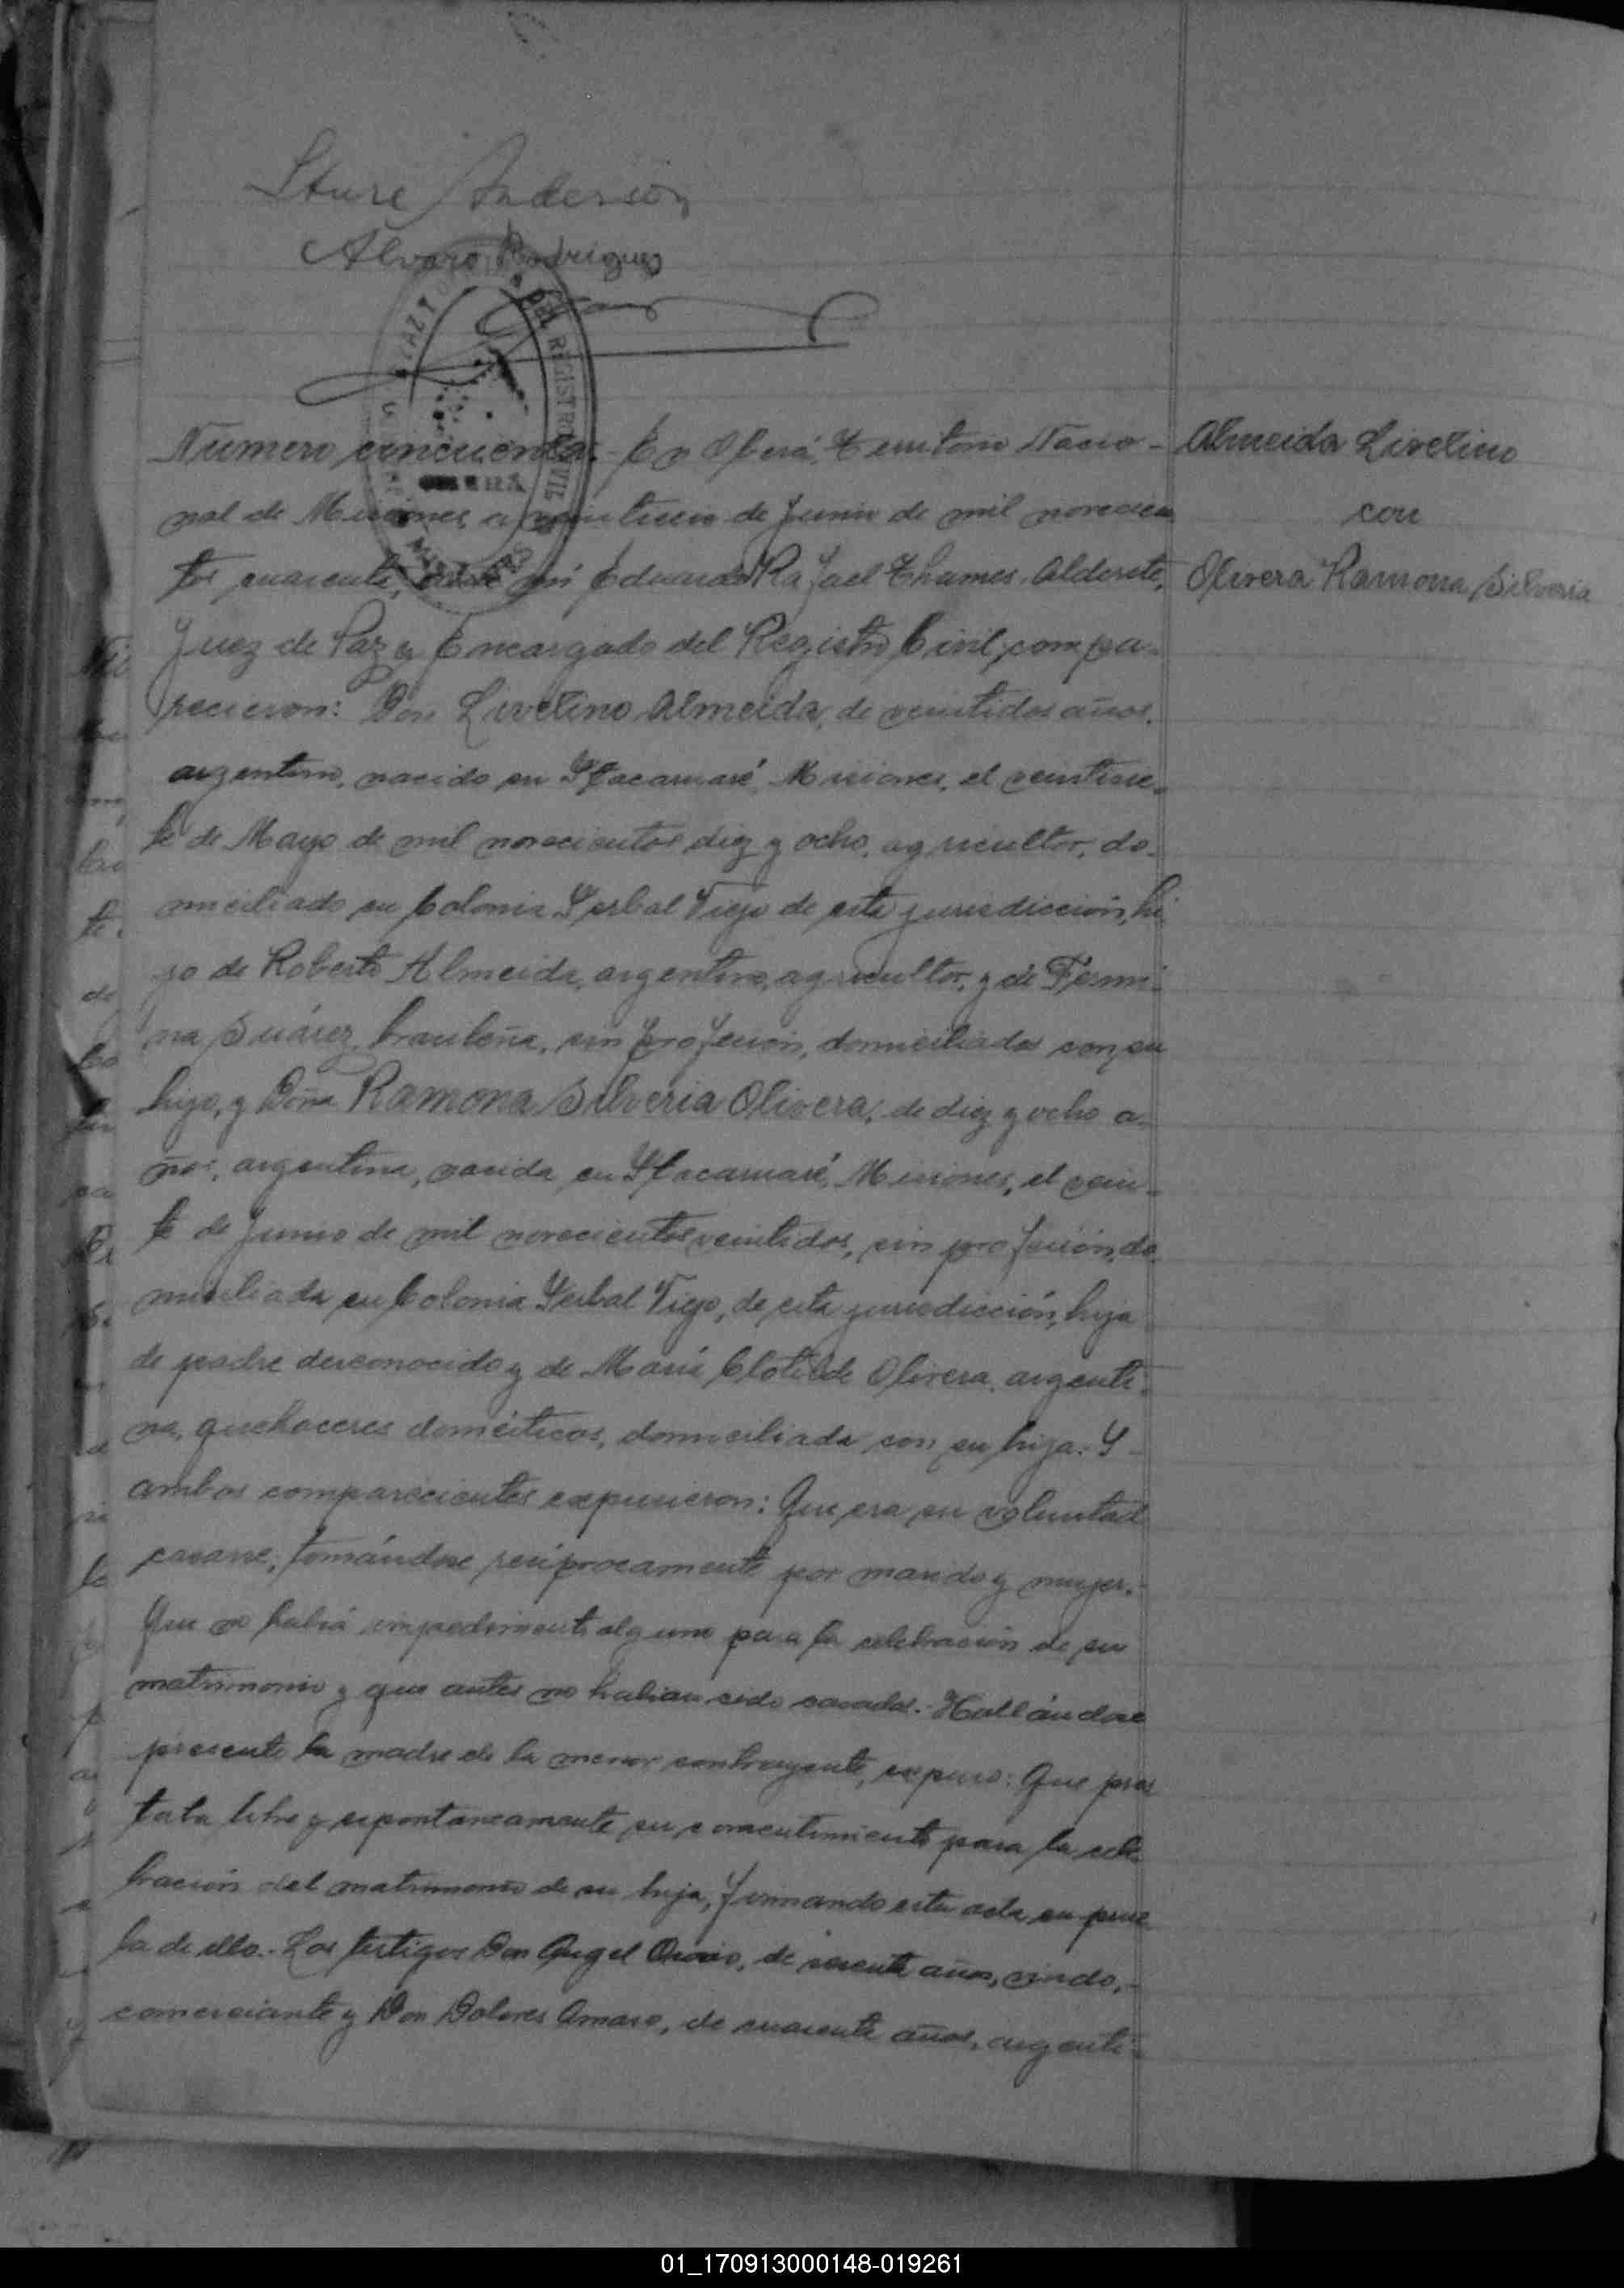 Sture Anderson
Alvaro Rodriguez
JUZGADO DE PAZ Y DEL REGISTRO CIVIL
Número cincuenta.- En Oberá, Territorio Nacio-
nal de Misiones, a veintiseis de Junio de mil novecien
tos cuarenta, ante mi Eduardo Rafael Thames Alderete,
Juez de Paz y Encargado del Registro Civil, compa-
recieron: Don Livelino Almeida, de veintidos años,
argentino, nacido en Itacaruaré, Misiones, el veintisie-
te de Mayo de mil novecientos diez y ocho, agricultor, do-
miciliado en Colonia Yerbal Viejo de esta jurisdicción, hi
jo de Roberto Almeida, argentino, agricultor, y de Fermi-
na Suárez, brasileña, sin profesión, domiciliados con su
hijo, y Doña Ramona Silveria Olivera, de diez y ocho a-
ños, argentina, nacida en Itacaruaré, Misiones, el vein-
te de Junio de mil novecientos veintidos, sin profesión, do-
miciliada en Colonia Yerbal Viejo, de esta jurisdicción, hija
de padre desconocido y de María Clotilde Olivera, argenti-
na, quehaceres domésticos, domiciliada con su hija. Y
ambos comparecientes expusieron: Que era su voluntad
casarse, tomándose recíprocamente por marido y mujer.-
Que no había impedimento alguno para la celebración de su
matrimonio y que antes no habian sido casados.- Hallándose
presente la madre de la menor contrayente, expuso: Que pres
taba libre y espontaneamente su consentimiento para la cele
bración del matrimonio de su hija, firmando esta acta en prue
ba de ello.- Los testigos Don Angel Osorio, de sesenta años, viudo,-
comerciante y Don Dolores Amaro, de cuarenta años, argenti-
Almeida Livelino
con
Olivera Ramona Silveria
01_170913000148-019261